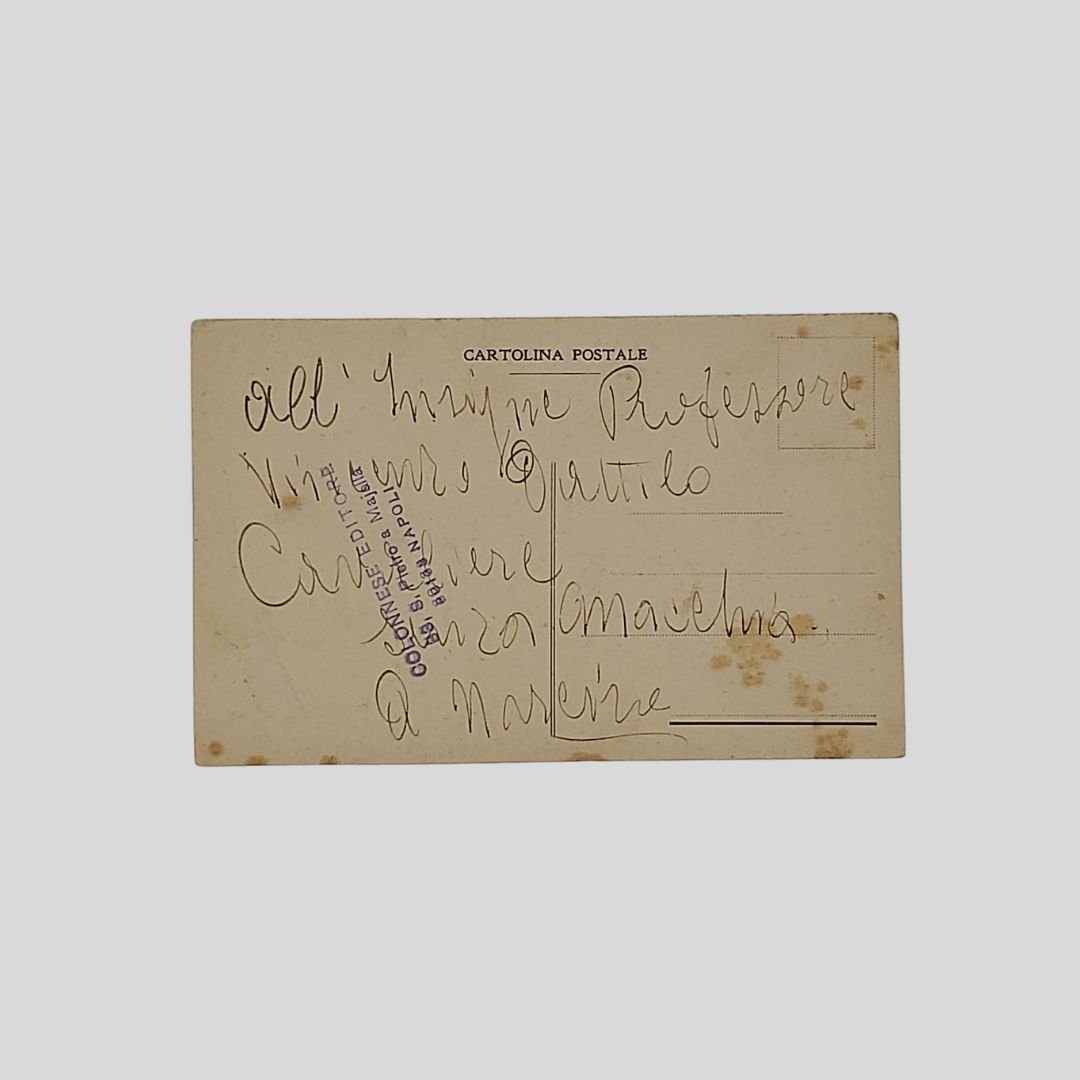 CARTOLINA POSTALE
All' Insigne Professore
Vincenzo Dattilo
Cavaliere
senza macchia.
COLONNESE EDITORE
33, S. Pietro a Majella
80138 NAPOLI